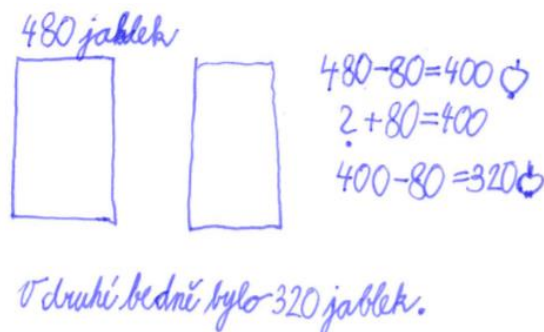 480 jablek
480-80=400
? +80=400
400-80=320
V druhé bedně bylo 320 jablek.